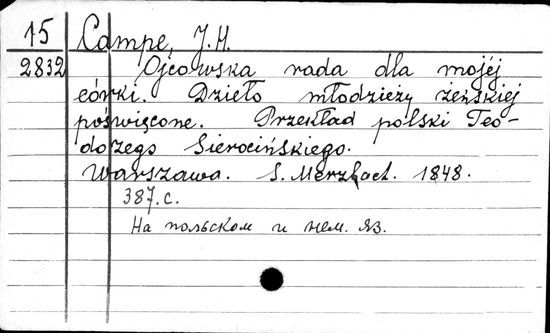 15 Campe, J.H.
2832 Ojcowska rada dla mojéj
córki. Dzieło młodzieży żeńskiej
poświęcone. Przekład polski Teo-
dozego Sierocińskiego.
Warszawa. S. Merzbach. 1848.
387.c.
На польском и нем. яз.